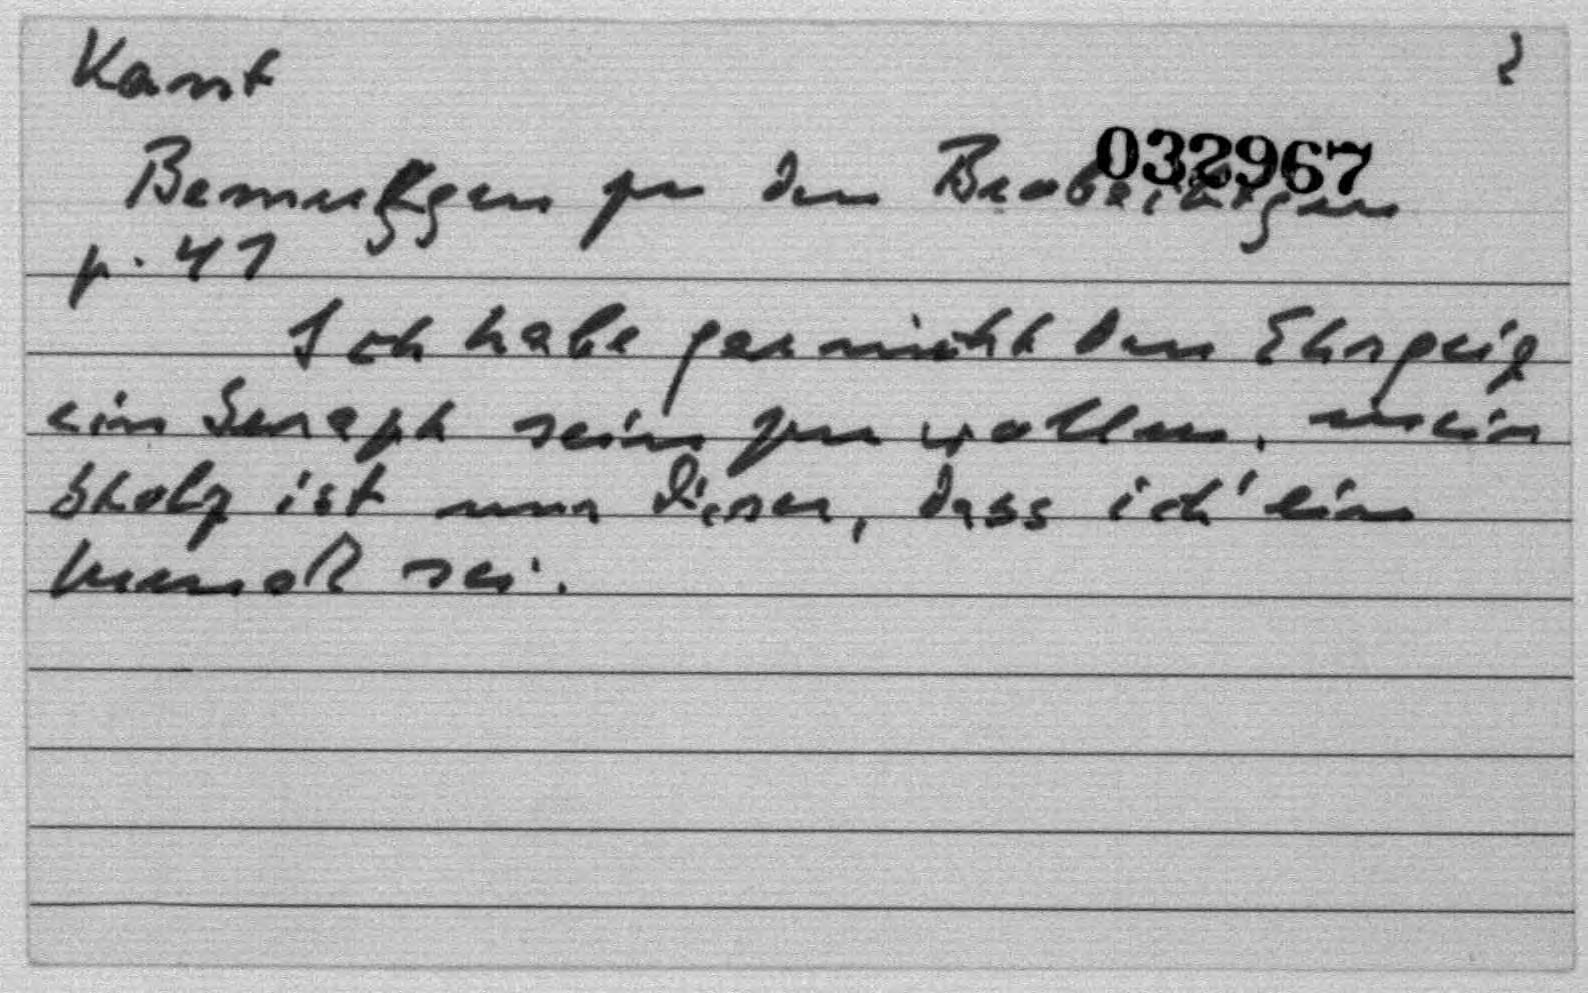 Kant 2
032967
Bemerkgen zu den Beobachtgen
p. 41
Ich habe gar nicht den Ehrgeiz
ein Seraph sein zu wollen, mein
Stolz ist nur dieser, dass ich ein
Mensch sei.